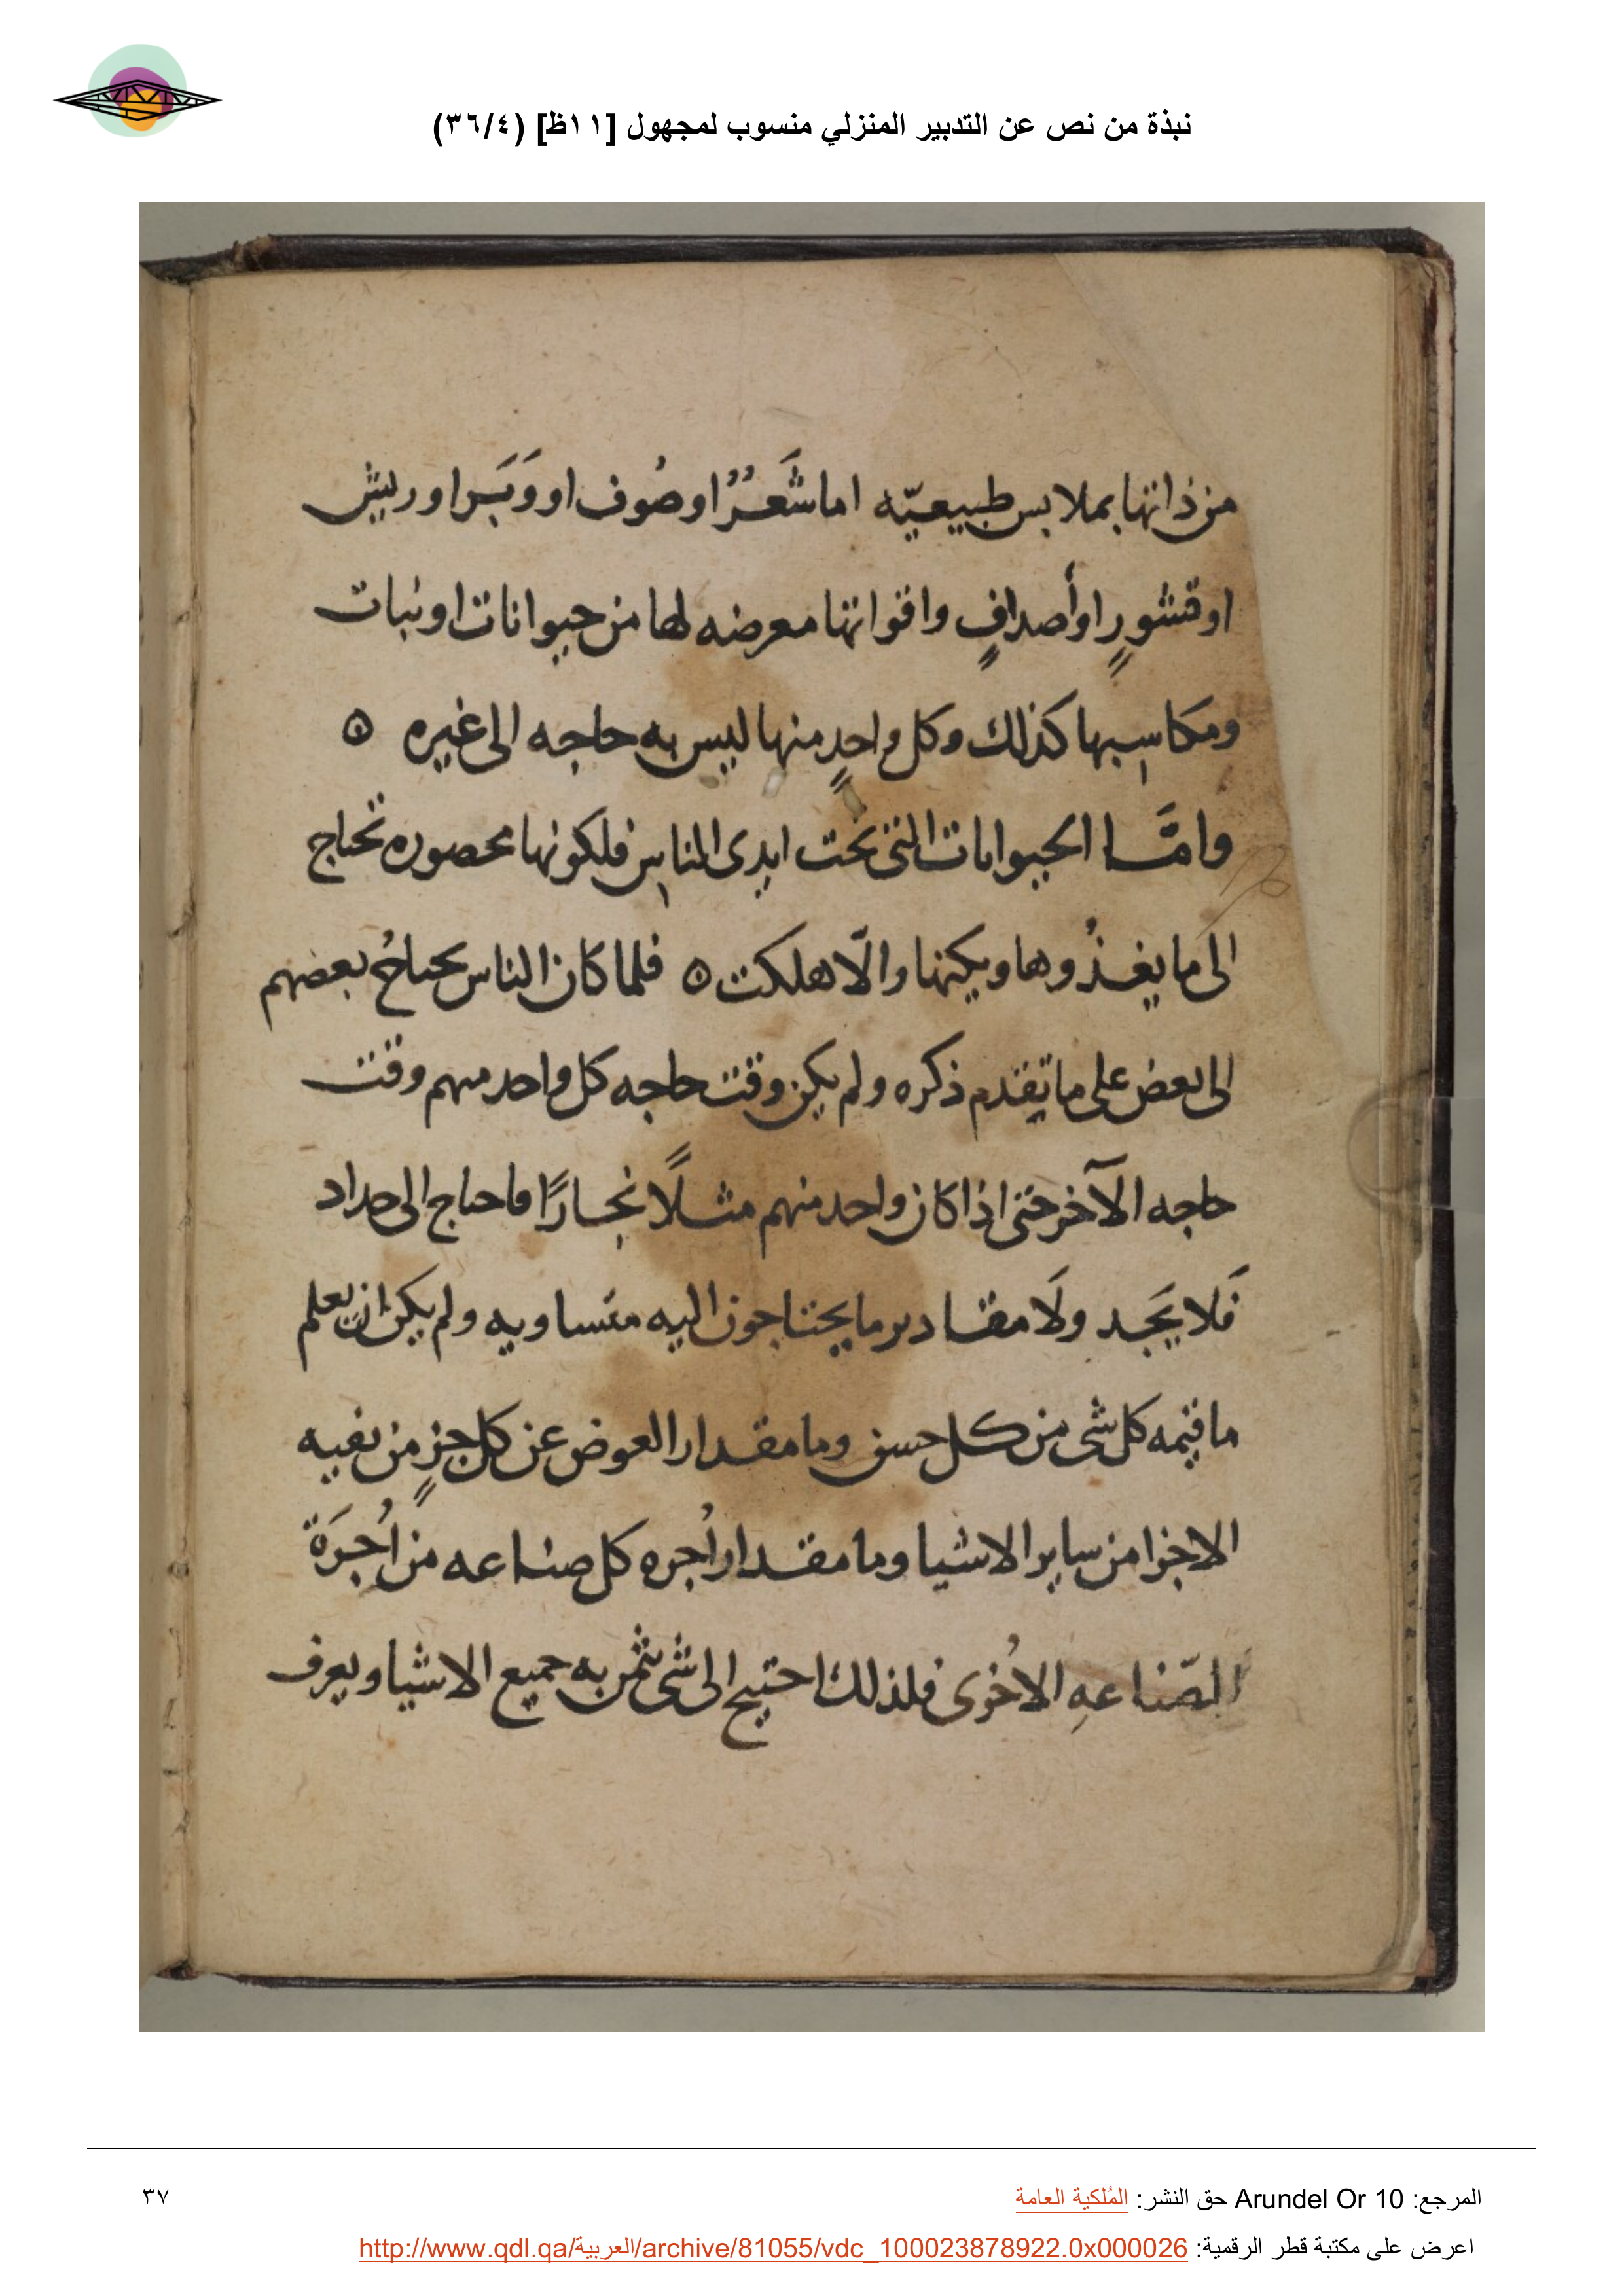 نبذة من نص عن التدبير المنزلي منسوب لمجهول [١١ظ] (٣٦/٤)
من ذاتها بملابس طبيعيّه اما شَعَرٌ او صُوف او وَبَر او ريش
او قشورٍ او أصدافٍ واقواتها معرضه لها من حيوانات او نبات
ومكاسِبها كذلك وكل واحدٍ منها ليس به حاجه الى غيره ه
وامَّا الحيوانات التى تحت ايدى الناسِ فلكونها محصوره تحتاج
الى ما يغذُوها ويكنها والّا هلكت ه فلما كان الناس يحتاجُ بعضهم
الى بعض على ما تقدم ذكره ولم يكن وقت حاجه كل واحد منهم وقت
حاجه الآخر حتى اذا كان واحد منهم مثلًا نجارًا فاحتاج الى حداد
فَلا يَجد ولَا مقادير ما يحتاجون اليه متساويه ولم يكن ان يعلم
ما قيمه كل شى من كل جنس وما مقدار العوض عن كل جزٍ من بقيه
الاجزا من ساير الاشيا وما مقدار أُجره كل صناعه من أُجرَة
الصّناعهِ الاُخرى فلذلك احتيج الى شى يثمن به جميع الاشيا ويعرف
المرجع: Arundel Or 10 حق النشر: المُلكية العامة
٣٧
اعرض على مكتبة قطر الرقمية: http://www.qdl.qa/العربية/archive/81055/vdc_100023878922.0x000026